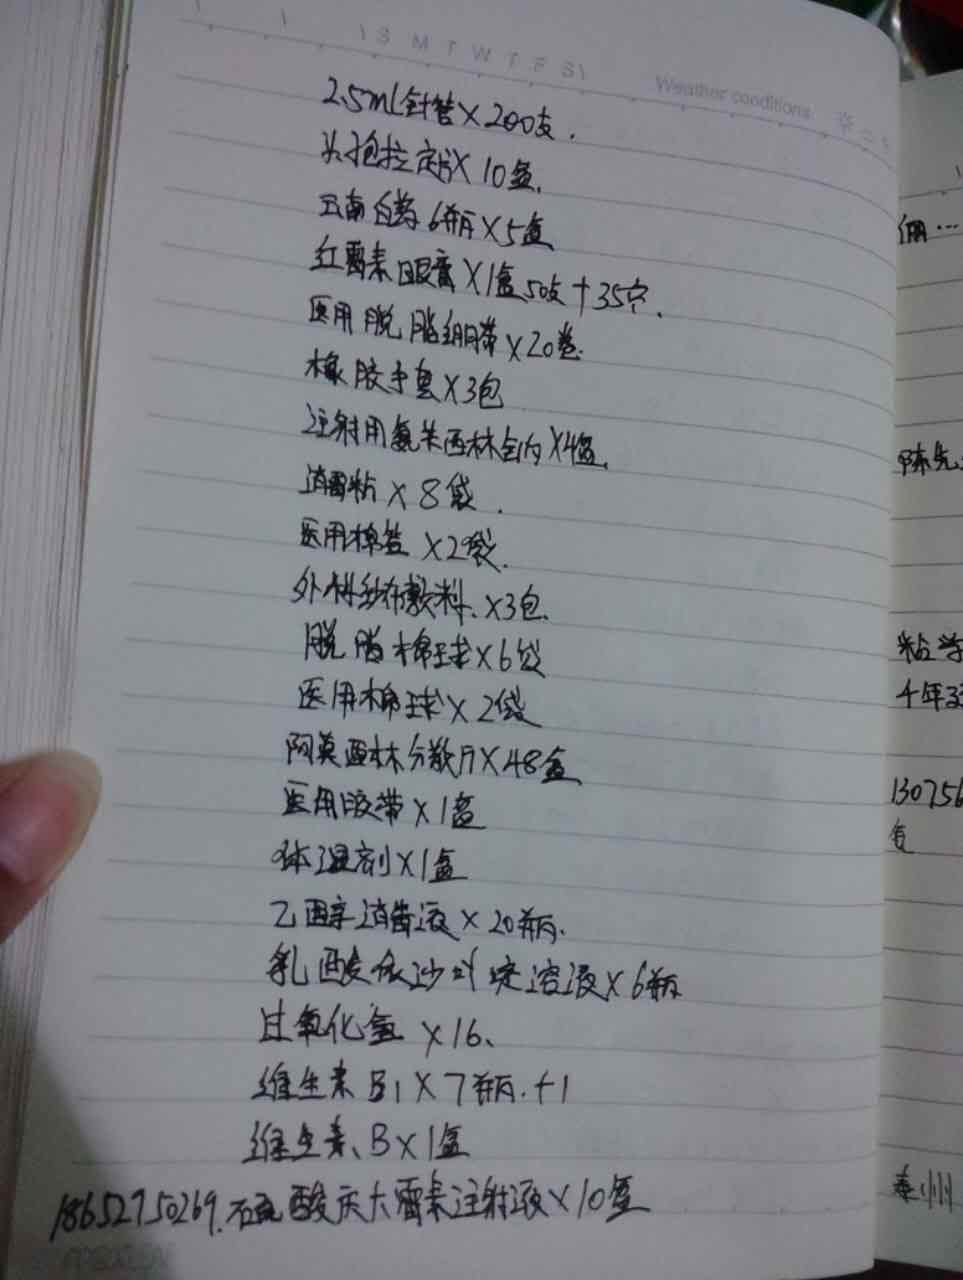 S M T W T F S
Weather conditions
2.5ml针管×200支.
头孢拉定片×10盒.
云南白药6瓶×5盒
红霉素眼膏×1盒50支+35支.
医用脱脂绷带×20卷.
橡胶手套×3包
注射用氨苄西林钠×4盒.
消毒粉×8袋.
医用棉签×29袋.
外科纱布敷料.×3包.
脱脂棉球×6袋
医用棉球×2袋
阿莫西林分散片×48盒
医用胶带×1盒
体温剂×1盒
乙醇消毒液×20瓶.
乳酸依沙吖啶溶液×6瓶
过氧化氢×16、
维生素B1×7瓶.+1
维生素、B×1盒
18652950269.硫酸庆大霉素注射液×10盒
俩…
陈先
粘学
千年
130756
泰州